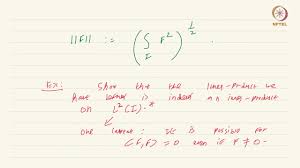 NPTEL
||F|| := ( ∫_I F² )^{1/2} .
Ex: Show that the inner-product we
have defined is indeed an inner-product
on L²(I).*
One caveat: It is possible for
⟨F,F⟩ = 0 even if F ≠ 0.